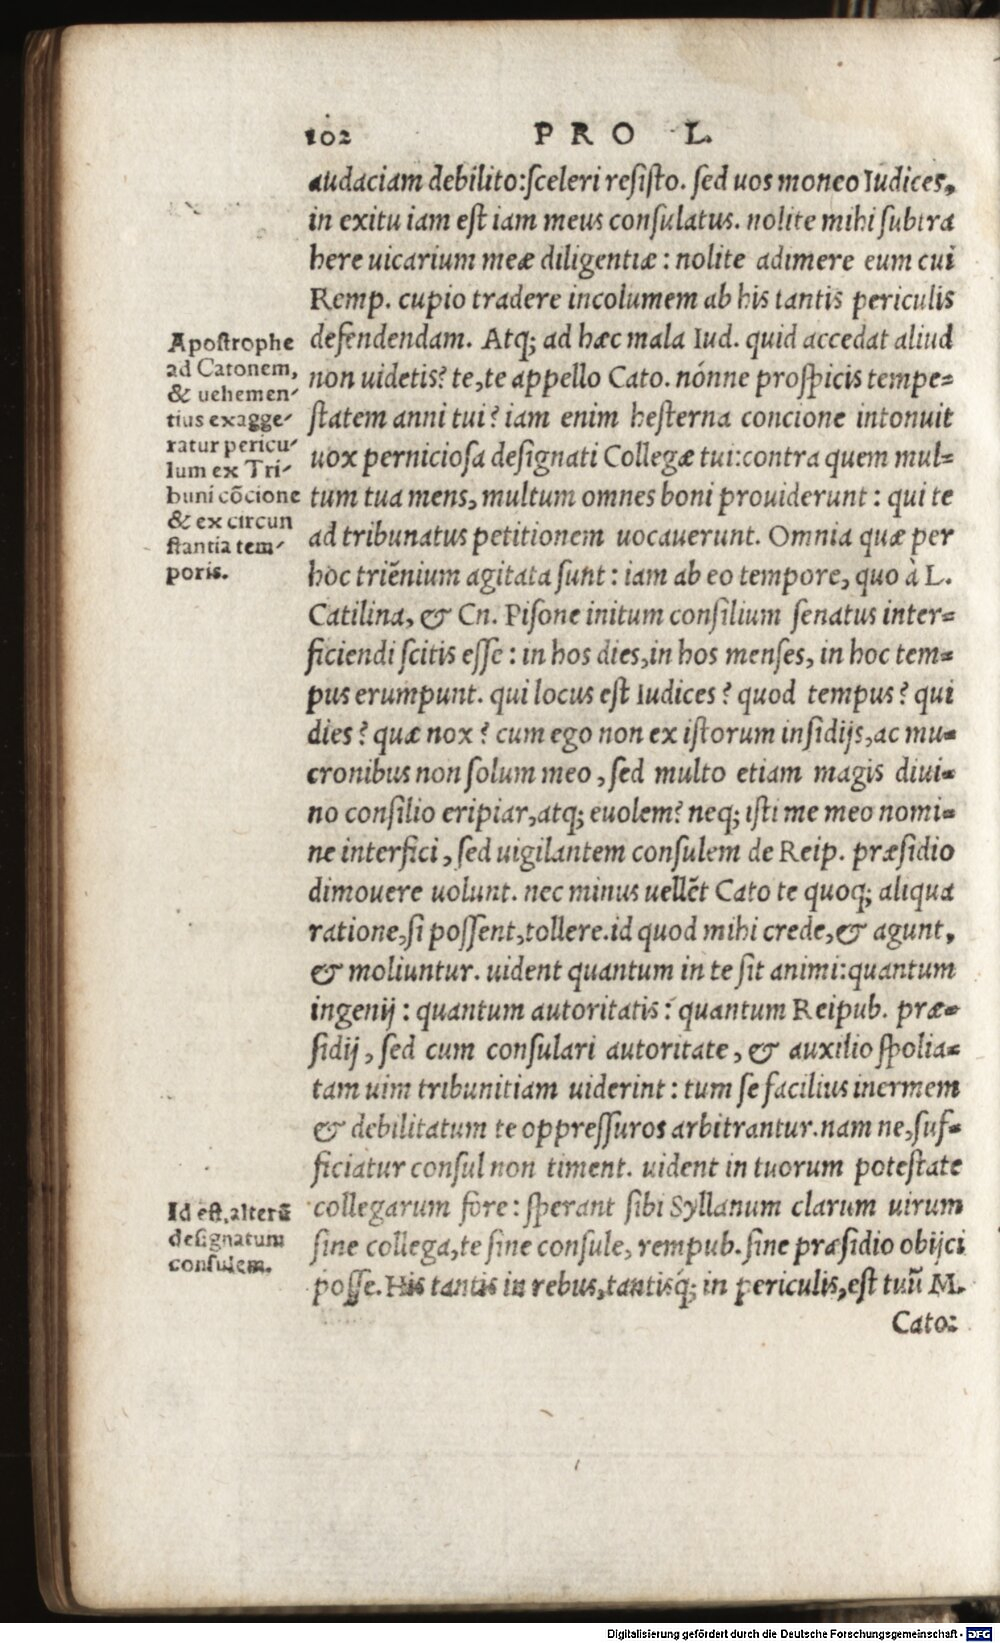 102 PRO L.
audaciam debilito: sceleri resisto. sed uos moneo Iudices,
in exitu iam est iam meus consulatus. nolite mihi subtra
here uicarium meæ diligentiæ: nolite adimere eum cui
Remp. cupio tradere incolumem ab his tantis periculis
defendendam. Atq; ad hæc mala Iud. quid accedat aliud
non uidetis? te, te appello Cato. nónne prospicis tempe=
statem anni tui? iam enim hesterna concione intonuit
uox perniciosa designati Collegæ tui: contra quem mul=
tum tua mens, multum omnes boni prouiderunt: qui te
ad tribunatus petitionem uocauerunt. Omnia quæ per
hoc triẽnium agitata sunt: iam ab eo tempore, quo à L.
Catilina, & Cn. Pisone initum consilium senatus inter=
ficiendi scitis esse: in hos dies, in hos menses, in hoc tem=
pus erumpunt. qui locus est Iudices? quod tempus? qui
dies? quæ nox? cum ego non ex istorum insidijs, ac mu=
cronibus non solum meo, sed multo etiam magis diui=
no consilio eripiar, atq; euolem? neq; isti me meo nomi=
ne interfici, sed uigilantem consulem de Reip. præsidio
dimouere uolunt. nec minus uellẽt Cato te quoq; aliqua
ratione, si possent, tollere. id quod mihi crede, & agunt,
& moliuntur. uident quantum in te sit animi: quantum
ingenij: quantum autoritatis: quantum Reipub. præ=
sidij, sed cum consulari autoritate, & auxilio spolia=
tam uim tribunitiam uiderint: tum se facilius inermem
& debilitatum te oppressuros arbitrantur. nam ne, suf=
ficiatur consul non timent. uident in tuorum potestate
collegarum fore: sperant sibi Syllanum clarum uirum
sine collega, te sine consule, rempub. sine præsidio obijci
posse. His tantis in rebus, tantisq́; in periculis, est tuũ M.
Cato:
Apostrophe
ad Catonem,
& uehemen-
tius exagge-
ratur pericu-
lum ex Tri-
buni cõcione
& ex circun
stantia tem-
poris.
Id est, alterũ
designatum
consulem.
Digitalisierung gefördert durch die Deutsche Forschungsgemeinschaft - DFG